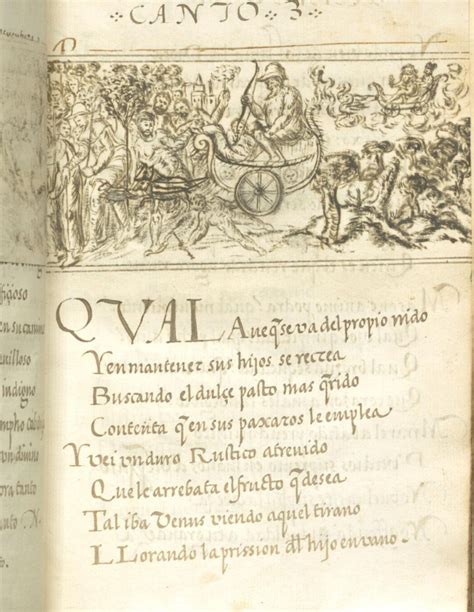 CANTO · 3 ·
QVAL Aueq̃seva del propio nido
Y en mantener sus hijos se recrea
Buscando el dulçe pasto mas q̃rido
Contenta q̃ en sus paxaros le emplea
Y vei vn duro Rustico atreuido
Que le arrebata el fructo q̃ desea
Tal iba Venus viendo aquel tirano
LLorando la prission dl hijo en vano
figioso
en su camino
uilloso
indigno
mpho
vn diuino
tanto
anto N